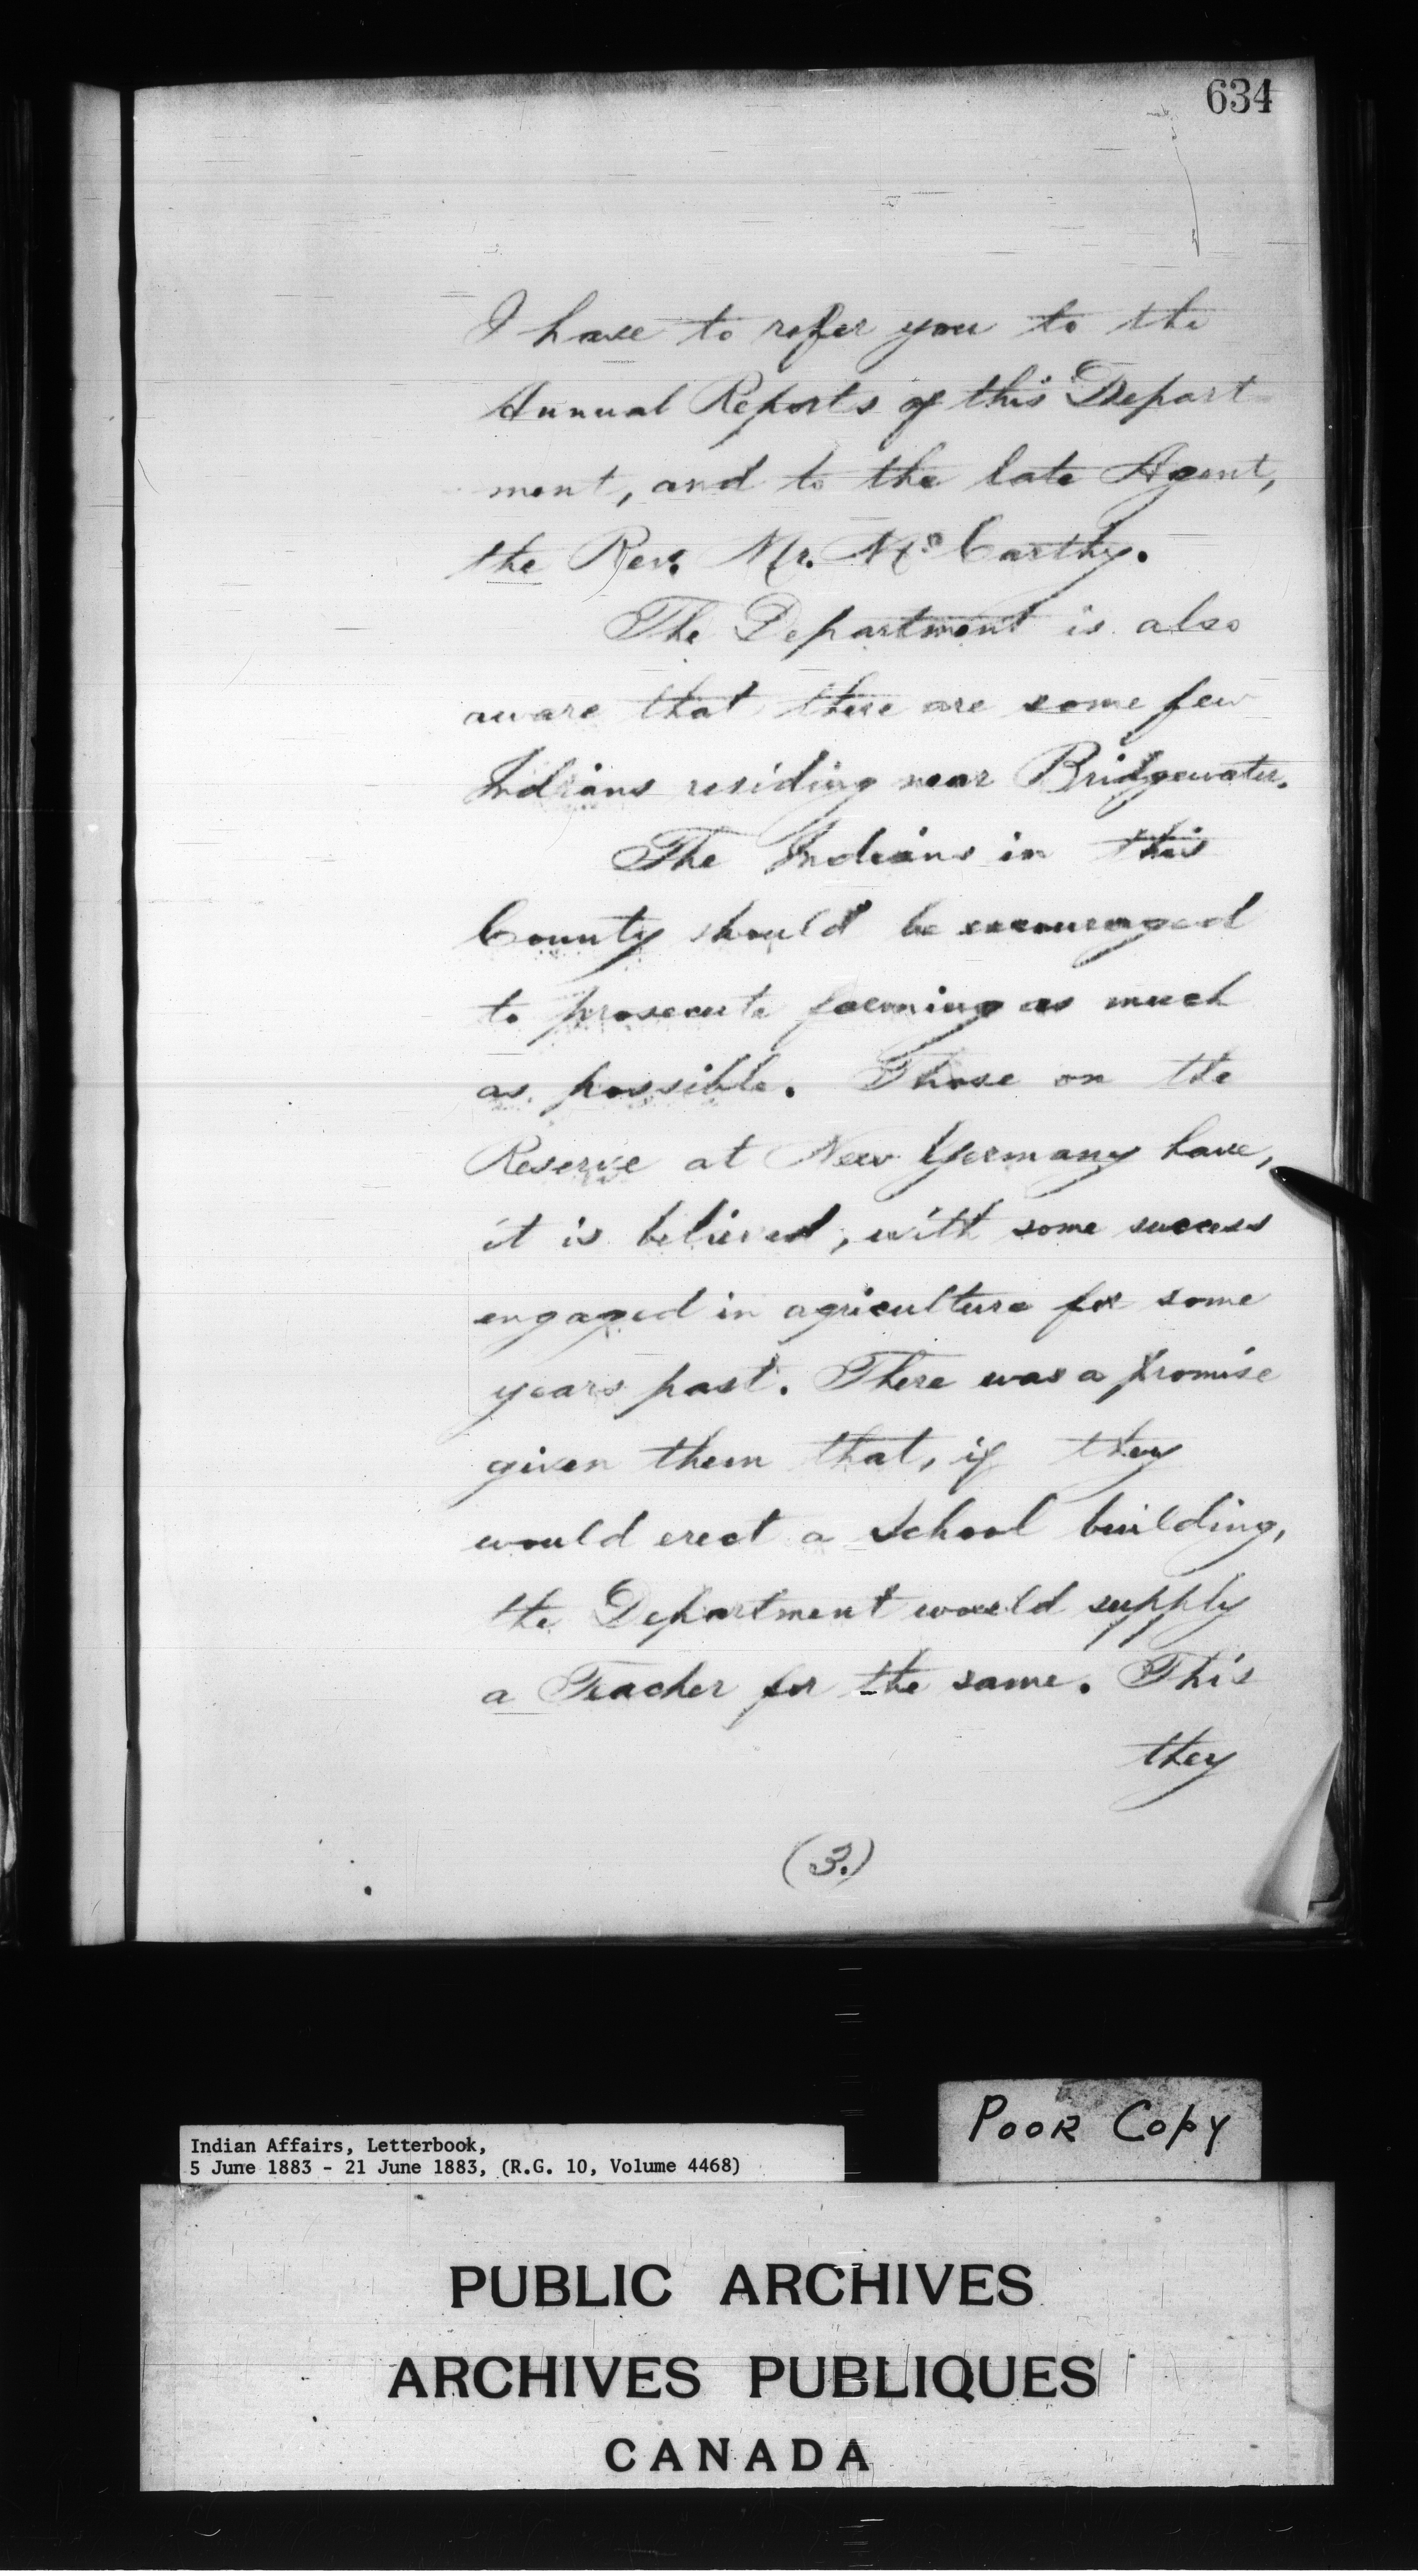 634
I have to refer you to the
Annual Reports of this Depart
ment, and to the late Agent,
the Rev. Mr. McCarthy.
The Department is also
aware that there are some few
Indians residing near Bridgewater.
The Indians in this
County should be encouraged
to prosecute farming as much
as possible. Those on the
Reserve at New Germany have,
it is believed, with some success
engaged in agriculture for some
years past. There was a promise
given them that, if they
would erect a School building,
the Department would supply
a Teacher for the same. This
they
(3.)
POOR COPY
Indian Affairs, Letterbook,
5 June 1883 - 21 June 1883, (R.G. 10, Volume 4468)
PUBLIC ARCHIVES
ARCHIVES PUBLIQUES
CANADA